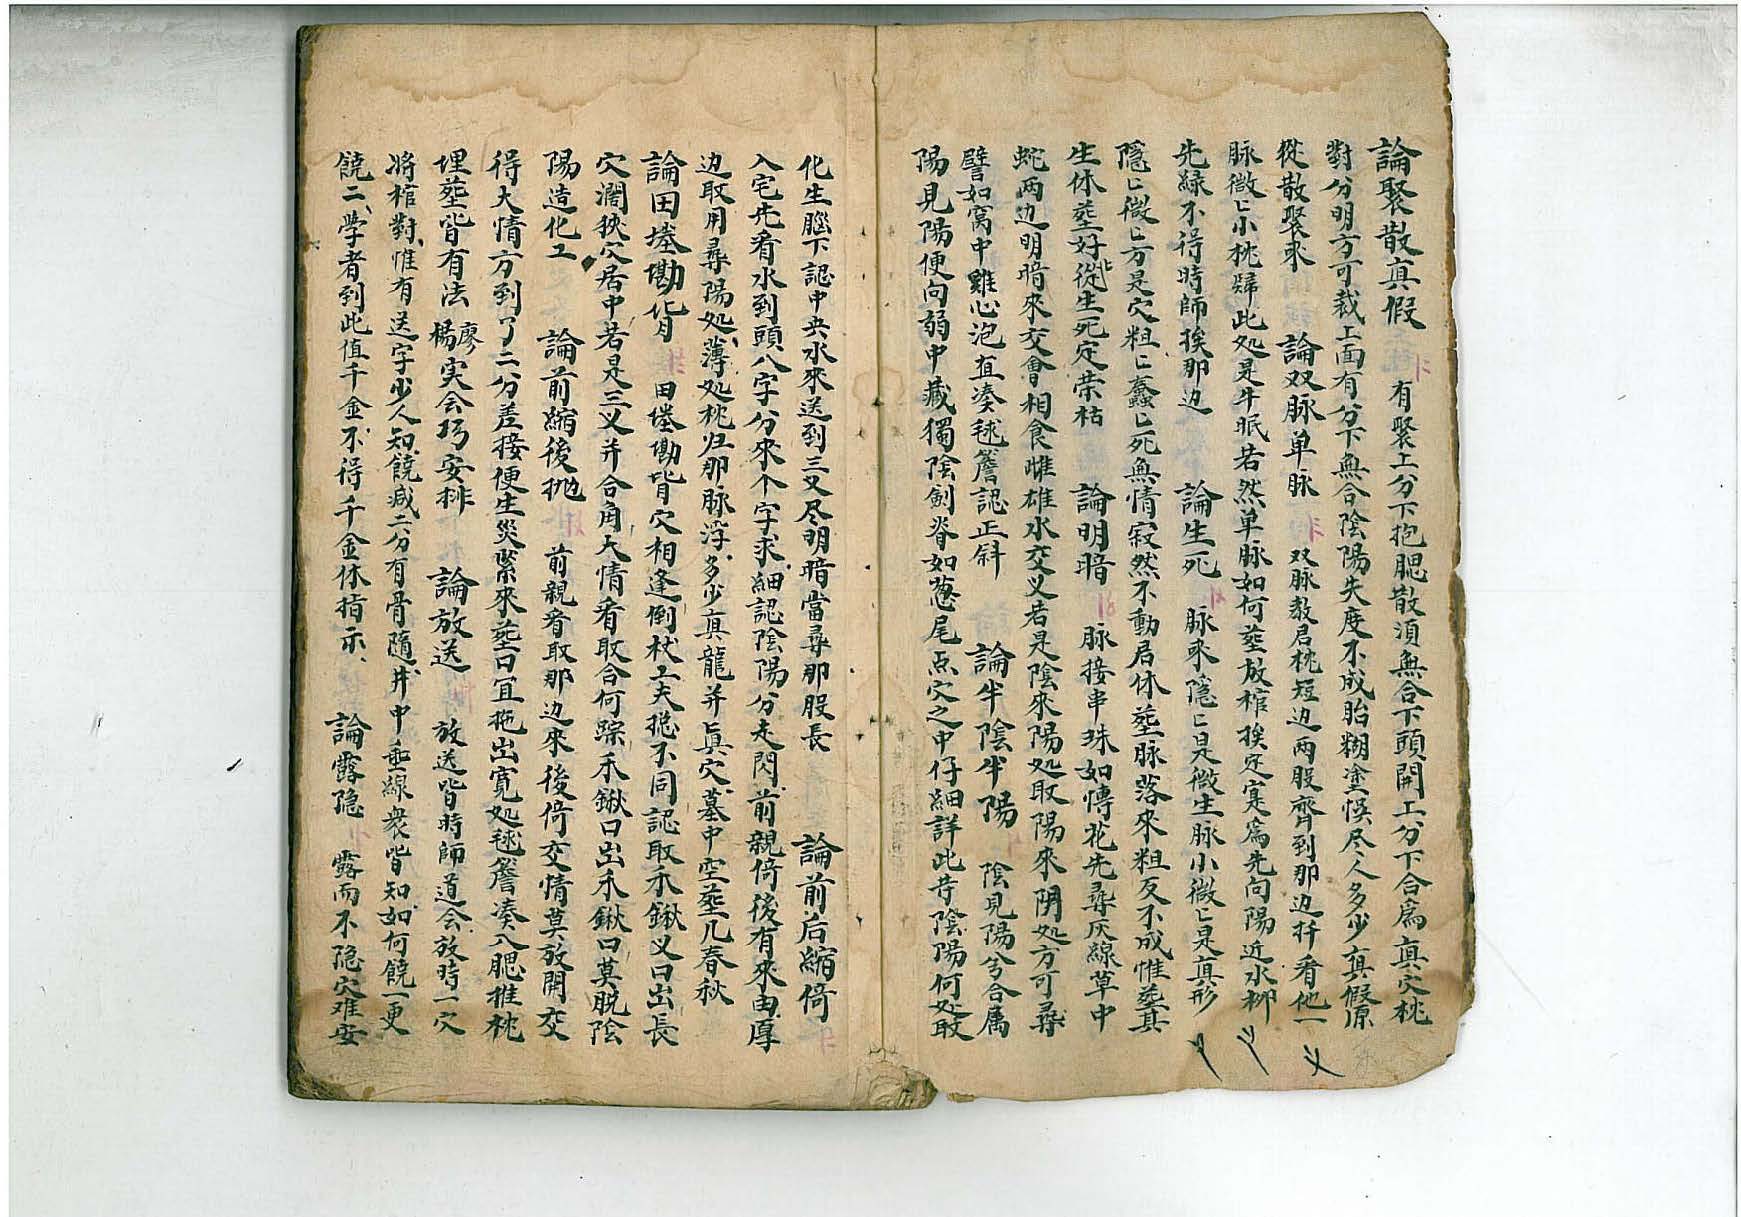 論聚散真假 有聚上分下抱腮散湏無合下頭開上分下合爲真穴枕
對分明方可裁上面有分下無合陰陽失度不成胎糊塗悞尽人多少真假原
從散聚來 論双脉单脉 双脉教君枕短边兩股齊到那边扦看他一
脉微〻小枕歸此処是牛眠若然单脉如何塟放棺挨定寔爲先向陽近水柳
先緑不得時師挨那边 論生死 脉來隱〻是微生脉小微〻是真形
隱〻微〻方是穴粗〻蠢〻死無情寂然不動居休塟脉落來粗反不成惟塟其
生休塟死好從生死定荣枯 論明暗 脉接串珠如慱花先尋灰線草中
蛇两边明暗來交會相食雌雄水交义若是陰來陽処取陽來阴処方可尋
譬如窩中雞心泡直湊毬簷認正斜 論半陰半陽 陰見陽兮合属
陽見陽便向弱中藏獨陰劍脊如葱尾点穴之中仔細詳此昔陰陽何処取
化生腦下認中央水來送到三义尽明暗當尋那股長 論前后縮倚
入宅先看水到頭八字分來个字求細認陰陽分走閃前親倚後有來由厚
边取用尋陽処薄処枕归那脉浮多少真龍并真穴墓中空塟几春秋
論田塂墈背 田塂墈背穴相逢倒杖工夫揔不同認取禾鍬义口出長
穴濶狹穴居中若是三义并合角大情看取合何踪禾鍬口出禾鍬口莫脱陰
陽造化工 論前縮後拋 前親看取那边來後倚交情莫放開交
得大情方到了二分差接便生災緊來塟口宜拖出寛処毬簷湊入腮推枕
埋塟皆有法楊廖实会巧安排 論放送 放送皆時師道会放時一穴
將棺對惟有送字少人知饒减二分有骨隨井中垂線衆皆知如何饒一更
饒二學者到此值千金不得千金休指示 論露隐 露而不隐穴难安